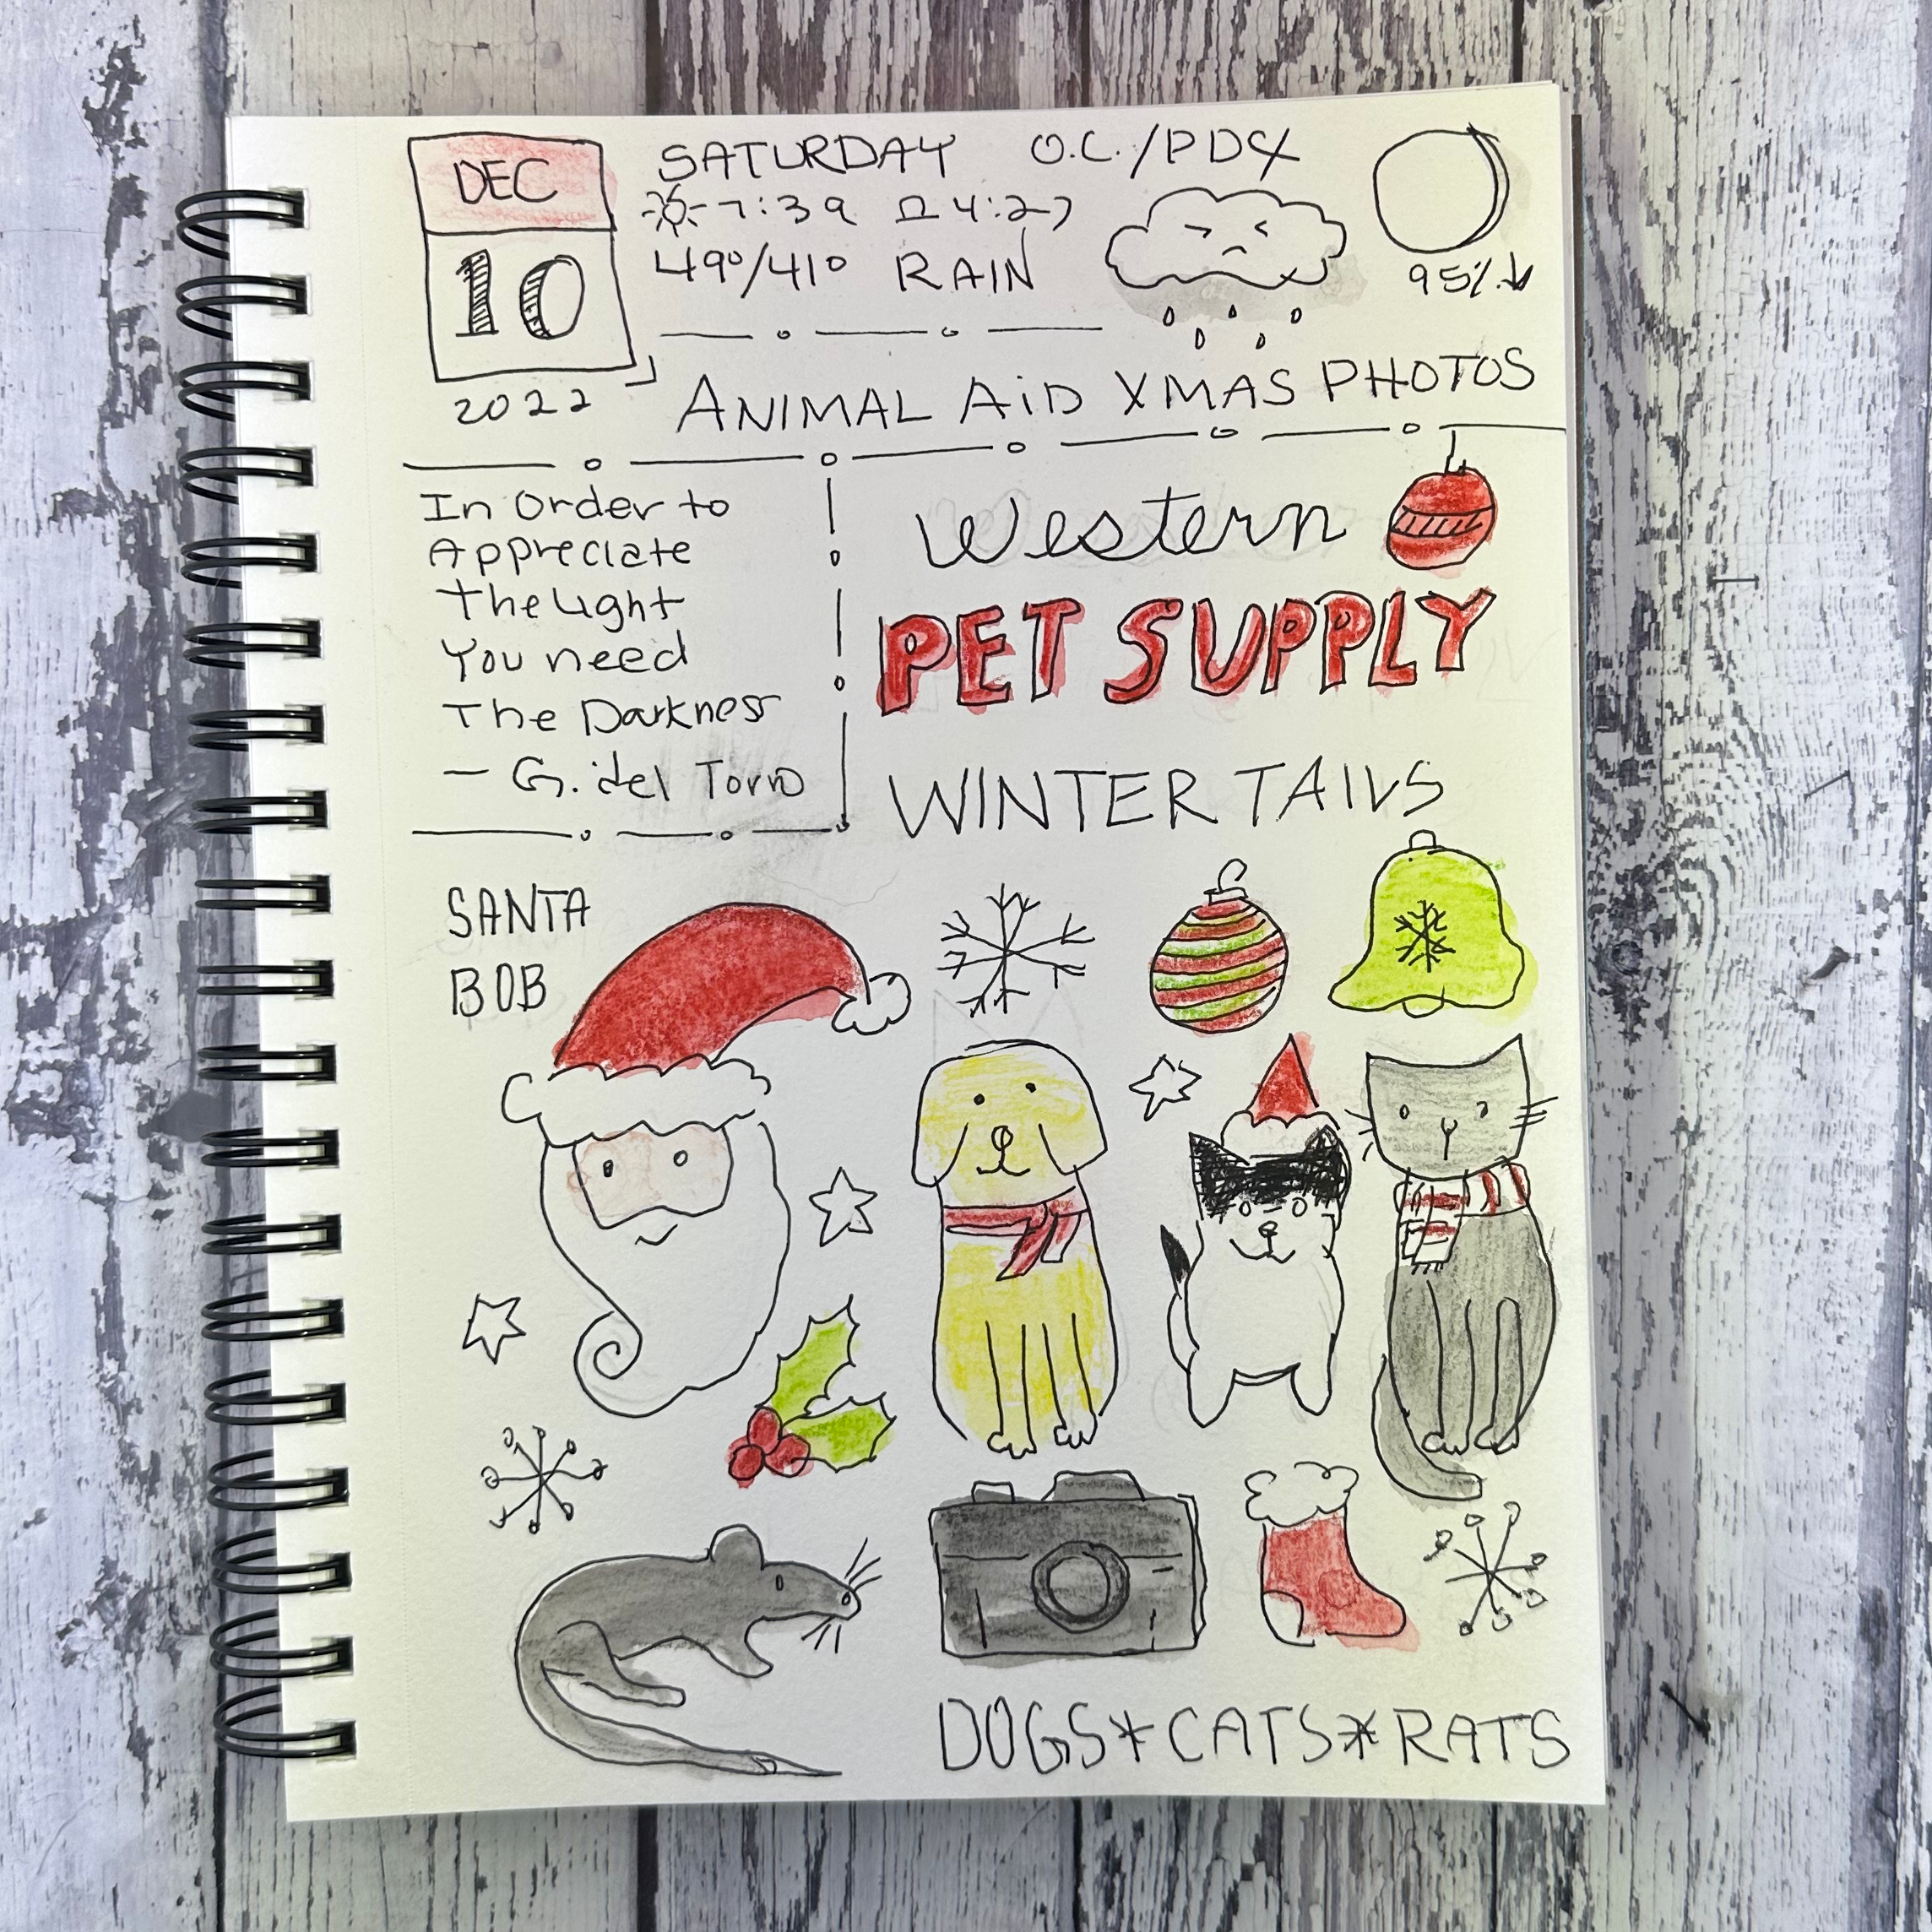 DEC
10
2022
SATURDAY O.C./PDX
7:39 4:27
49°/41° RAIN
95%↓
ANIMAL AiD XMAS PHOTOS
In Order to
Appreciate
The Light
You need
The Darkness
— G. del Torro
Western
PET SUPPLY
WINTER TAILS
SANTA
BOB
DOGS*CATS*RATS